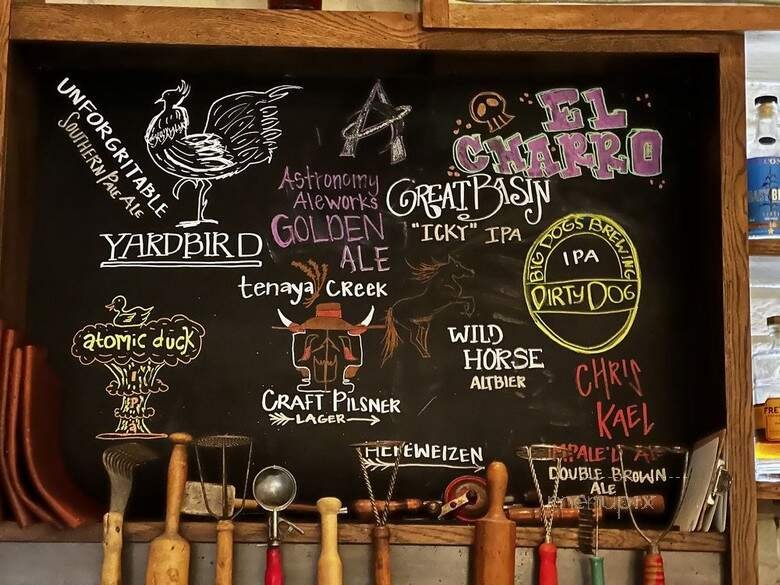 UNFORGRITABLE
SOUTHERN PALE ALE
YARDBIRD
A
ASTRONOMY
ALEWORKS
GOLDEN
ALE
EL
CHARRO
GREAT BASIN
"ICKY" IPA
BIG DOGS BREWING
IPA
DIRTY DOG
tenaya CREEK
CRAFT PILSNER
LAGER
atomic duck
IPA
WILD
HORSE
ALTBIER
HEFEWEIZEN
CHRIS
KAEL
IMPALE'D ALE
DOUBLE BROWN
ALE
menupix